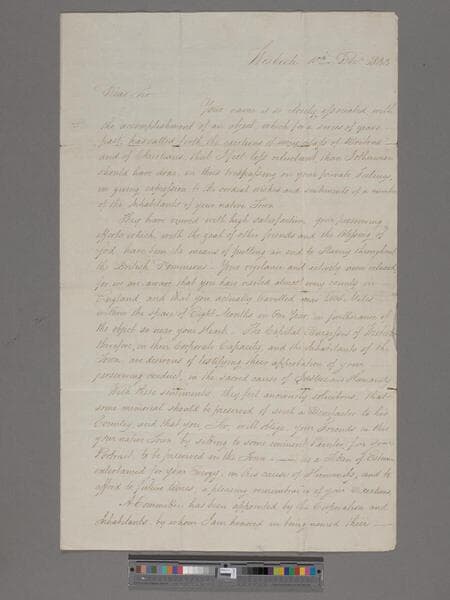 Wisbech 10th Feb.
Dear Sir
Your name is so closely associated with
the accomplishment of an object, which for a series of years
past, has called forth the exertions of every class of
and of Christians, that I feel less reluctant than I otherwise
should have done, in thus trespassing on your private feelings,
in giving expression to the cordial wishes and sentiments of a number
of the Inhabitants of your native Town.
They have viewed with high satisfaction your persevering
efforts which, with the zeal of other friends and the blessing of
God, have been the means of putting an end to Slavery throughout
the British Dominions. Your vigilance and activity never relaxed,
for we are aware that you have visited almost every county in
England, and that you actually travelled Miles
within the space of Eight Months in One Year, in furtherance of
the object so near your Heart. The Capital Burgesses of Wisbech
therefore, in their Corporate Capacity, and the Inhabitants of the
Town, are desirous of testifying their approbation of your
persevering conduct, in the sacred cause of Justice and Humanity.
With these sentiments they feel anxiously solicitous, that
some memorial should be preserved of such a Benefactor to his
Country, and that you Sir, will oblige your Friends in this
your native Town by sitting to some eminent Painter, for your
Portrait, to be preserved in the Town — as a Token of Esteem
entertained for your Energy, in this cause of Humanity, and to
afford to future times, a pleasing remembrance of your Exertions.
A Committee has been appointed by the Corporation and
Inhabitants, by whom I am honored in being named their